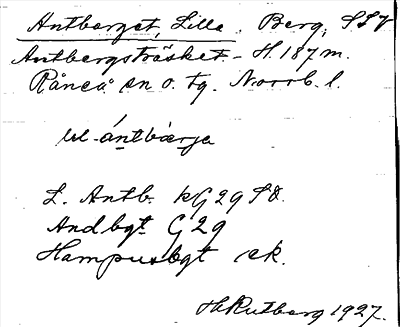 Antberget, Lilla. Berg, SSV
Antbergsträsket - H. 187 m.
Råneå sn o. tg. Norrb. l.
lel-ántbärja
L. Antb. kG 29 SO.
Andbgt G 29
Hampusbgt ek.
H Rutberg 1927.